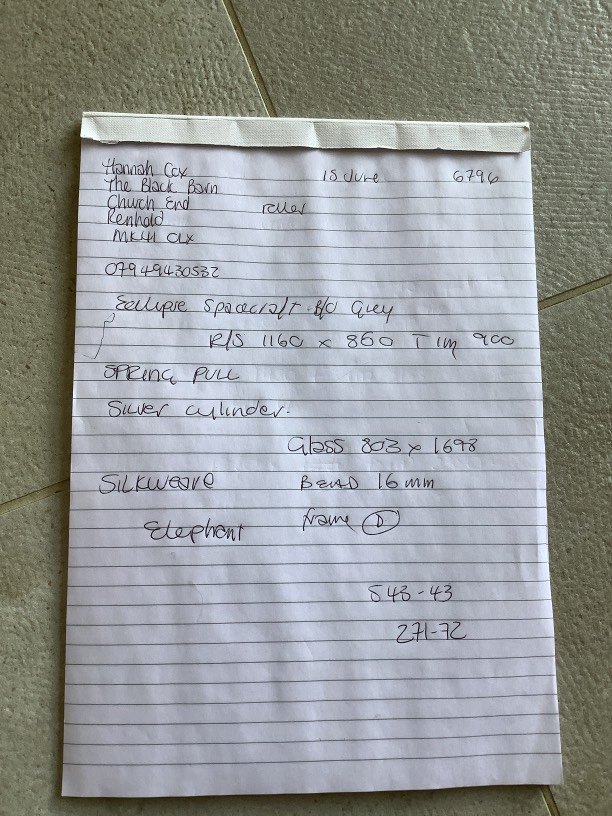 Hannah Cox 15 June 6796
The Black Barn
Church End roller
Renhold
MK41 0LX
07949430532
Ecllipse Spacecraft B/O Grey
R/S 1160 x 860 T 1m 900
SPRING PULL
Silver cylinder.
Glass 803 x 1698
SILKWEAVE BEAD 16mm
Elephant frame D
543-43
271-72